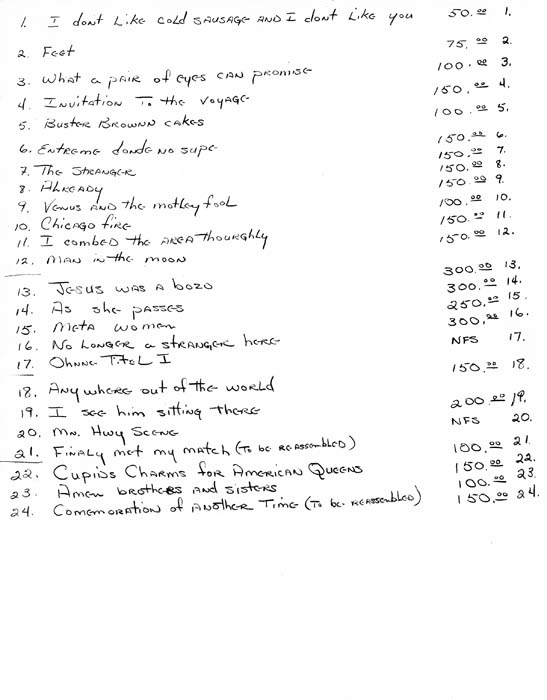 1. I dont Like cold SAUSAGE AND I dont Like you 50.00 1.
2. Feet 75.00 2.
3. What a pair of eyes CAN promise 100.00 3.
4. Invitation To the VOYAGE 150.00 4.
5. Buster Brownn CAKES 100.00 5.
6. Entreme donde no supe 150.00 6.
7. The STRANGER 150.00 7.
8. ALREADY 150.00 8.
9. Venus AND The motley fool 150.00 9.
10. Chicago fire 100.00 10.
11. I combed the AREA Thourghly 150.00 11.
12. MAN in the moon 150.00 12.
13. Jesus was a bozo 300.00 13.
14. As she passes 300.00 14.
15. Meta women 250.00 15.
16. No Longer a stranger here 300.00 16.
17. Ohnne Titel I NFS 17.
18. Any where out of the world 150.00 18.
19. I see him sitting there 200.00 19.
20. Mn. Hwy Scene NFS 20.
21. Finaly met my match (To be reassembled) 100.00 21.
22. Cupids Charms for American Queens 150.00 22.
23. Amen brothers and sisters 100.00 23.
24. Comemoration of Another Time (To be reassembled) 150.00 24.